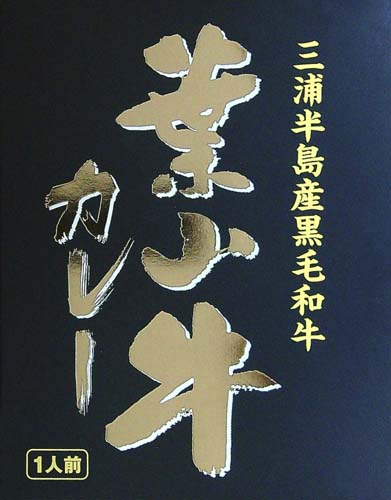 三浦半島産黒毛和牛
葉山牛
カレー
1人前